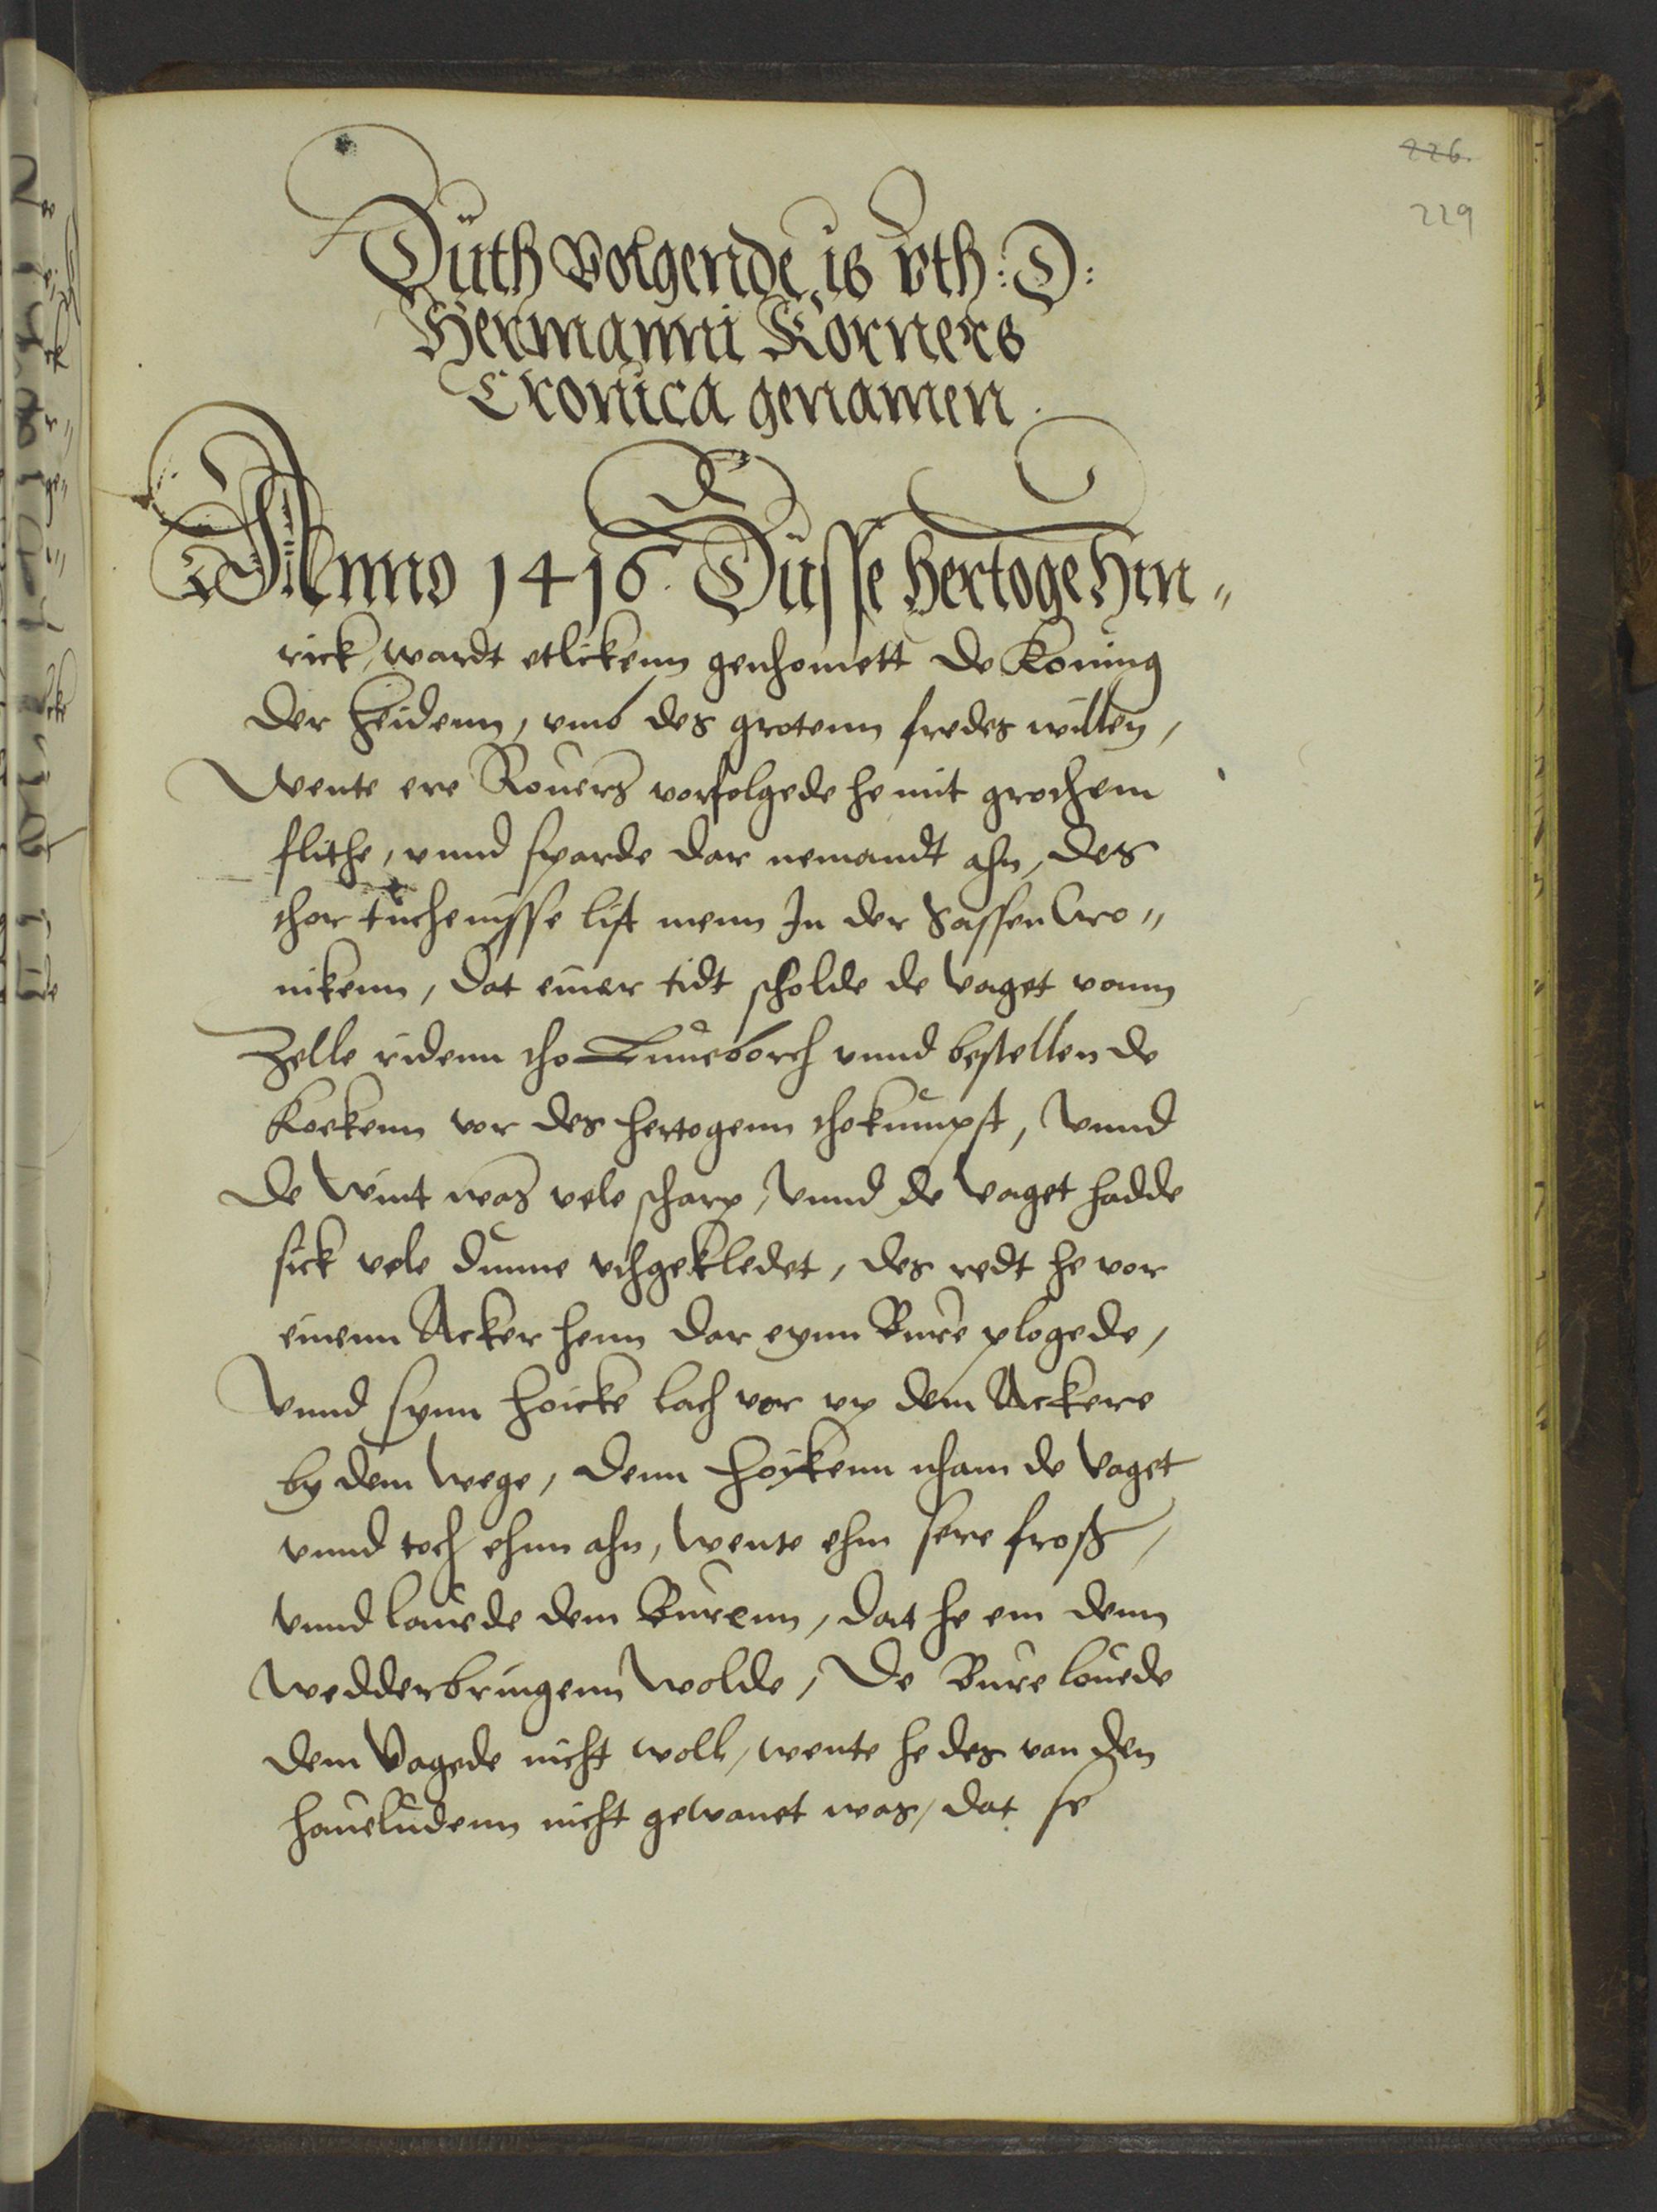 226.
229
Düth Volgende is vth: D:
Hermanni Korners
Cronica genamen.
Anno 1416. Düsse Hertoge Hin"
rick, wardt etlickenn genhomett de Koning
der Heidenn, vmb des grotenn fredes willen,
Wente ere Rouers vorfolgede he mit grothem
flithe, vnnd sparde dar nemandt ahn, des
thor tuchenisse list menn In der Sassen Cro"
nikenn, dat einer tidt scholde de Vaget vann
Zelle ridenn tho Luneborch vnnd bestellen de
Koekenn vor des Hertogenn thokumpst, Vnnd
de Wint was vele scharp, Vnnd de Vaget hadde
sick vele dunne vthgekledet, des redt he vor
einenn Acker henn dar eynn Bure plogede,
Vnnd synn Hoicke lach vor vp dem Ackere
by dem Wege, denn Hoykenn nham de Vaget
vnnd toch ehnn ahn, Wente ehm sere froß,
Vnnd lauede dem Burenn, dat he em denn
Wedderbringenn Wolde, De Bure louede
dem Vagede nicht woll, wente he des van den
Haueludenn nicht gewanet was, dat se